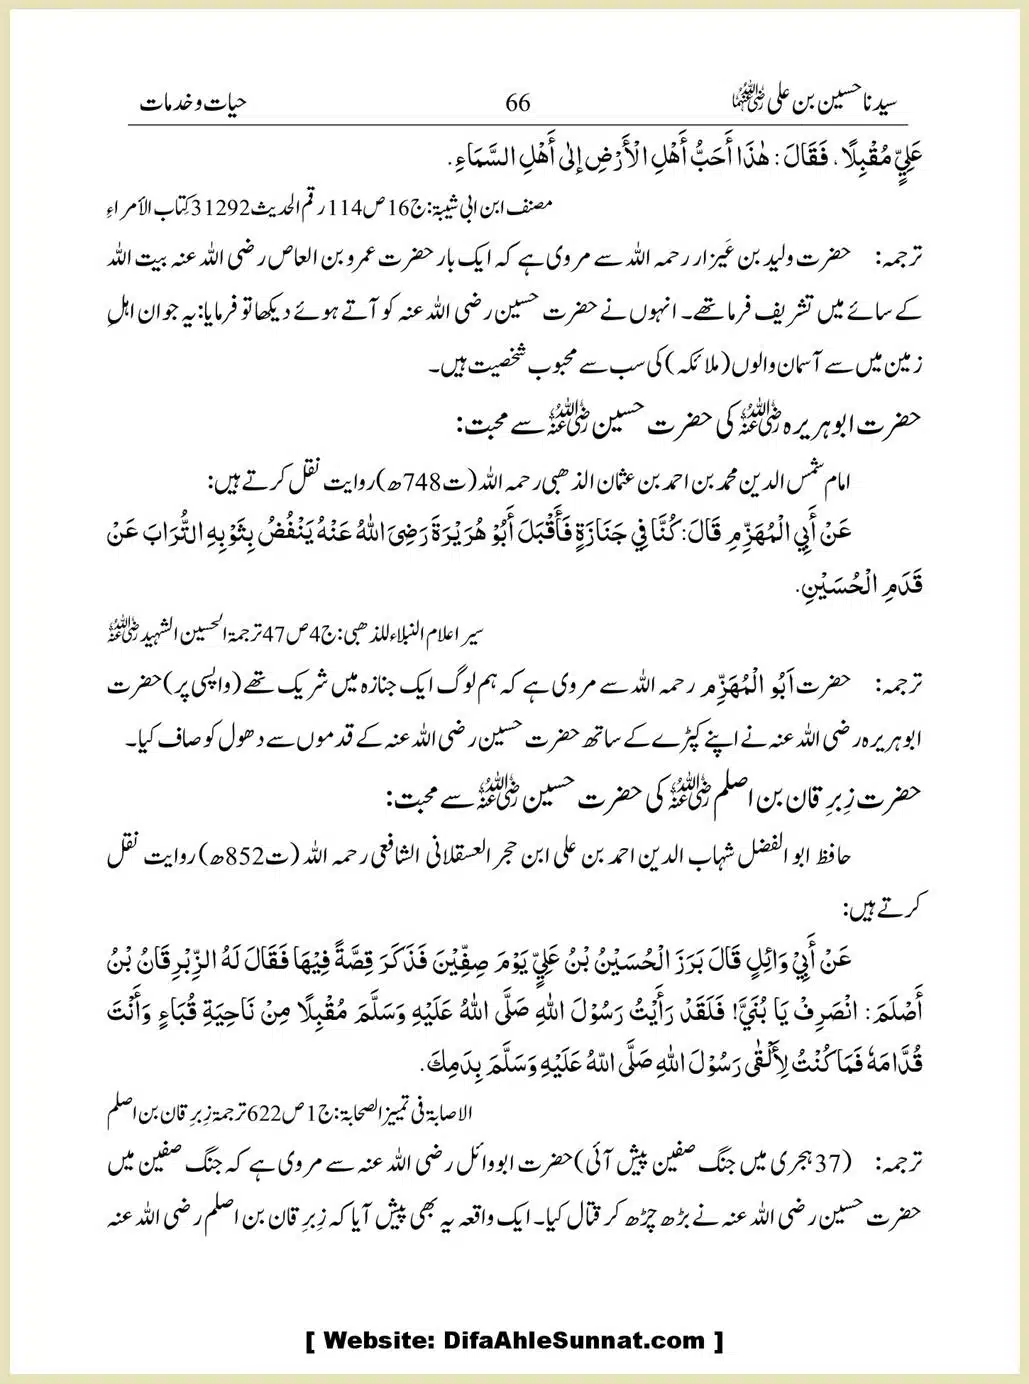 سیدنا حسین بن علی رضی اللہ عنہما 66 حیات و خدمات
عَلِيٍّ مُقْبِلًا، فَقَالَ: هٰذَا أَحَبُّ أَهْلِ الْأَرْضِ إِلٰى أَهْلِ السَّمَاءِ.
مصنف ابن ابی شیبۃ: ج16 ص114 رقم الحدیث 31292 کِتاب الأمراءِ
ترجمہ: حضرت ولید بن عَیزار رحمہ اللہ سے مروی ہے کہ ایک بار حضرت عمرو بن العاص رضی اللہ عنہ بیت اللہ
کے سائے میں تشریف فرما تھے۔ انہوں نے حضرت حسین رضی اللہ عنہ کو آتے ہوئے دیکھا تو فرمایا: یہ جوان اہلِ
زمین میں سے آسمان والوں (ملائکہ) کی سب سے محبوب شخصیت ہیں۔
حضرت ابوہریرہ رضی اللہ عنہ کی حضرت حسین رضی اللہ عنہ سے محبت:
امام شمس الدین محمد بن احمد بن عثمان الذھبی رحمہ اللہ (ت748ھ) روایت نقل کرتے ہیں:
عَنْ أَبِي الْمُهَزِّمِ قَالَ: كُنَّا فِي جَنَازَةٍ فَأَقْبَلَ أَبُوْ هُرَيْرَةَ رَضِيَ اللهُ عَنْهُ يَنْفُضُ بِثَوْبِهِ التُّرَابَ عَنْ
قَدَمِ الْحُسَيْنِ.
سیر اعلام النبلاء للذھبی: ج4 ص47 ترجمۃ الحسین الشہید رضی اللہ عنہ
ترجمہ: حضرت اَبُو الْمُهَزِّم رحمہ اللہ سے مروی ہے کہ ہم لوگ ایک جنازہ میں شریک تھے (واپسی پر) حضرت
ابوہریرہ رضی اللہ عنہ نے اپنے کپڑے کے ساتھ حضرت حسین رضی اللہ عنہ کے قدموں سے دھول کو صاف کیا۔
حضرت زِبرِقان بن اصلم رضی اللہ عنہ کی حضرت حسین رضی اللہ عنہ سے محبت:
حافظ ابو الفضل شہاب الدین احمد بن علی ابن حجر العسقلانی الشافعی رحمہ اللہ (ت852ھ) روایت نقل
کرتے ہیں:
عَنْ أَبِيْ وَائِلٍ قَالَ بَرَزَ الْحُسَيْنُ بْنُ عَلِيٍّ يَوْمَ صِفِّيْنَ فَذَكَرَ قِصَّةً فِيْهَا فَقَالَ لَهُ الزِّبْرِقَانُ بْنُ
أَصْلَمَ: انْصَرِفْ يَا بُنَيَّ! فَلَقَدْ رَأَيْتُ رَسُوْلَ اللهِ صَلَّى اللهُ عَلَيْهِ وَسَلَّمَ مُقْبِلًا مِنْ نَاحِيَةِ قُبَاءٍ وَأَنْتَ
قُدَّامَهٗ فَمَا كُنْتُ لِأَلْقٰى رَسُوْلَ اللهِ صَلَّى اللهُ عَلَيْهِ وَسَلَّمَ بِدَمِكَ.
الاصابۃ فی تمییز الصحابۃ: ج1 ص622 ترجمۃ زِبرِقان بن اصلم
ترجمہ: (37 ہجری میں جنگ صفین پیش آئی) حضرت ابووائل رضی اللہ عنہ سے مروی ہے کہ جنگ صفین میں
حضرت حسین رضی اللہ عنہ نے بڑھ چڑھ کر قتال کیا۔ ایک واقعہ یہ بھی پیش آیا کہ زِبرِقان بن اصلم رضی اللہ عنہ
[ Website: DifaAhleSunnat.com ]